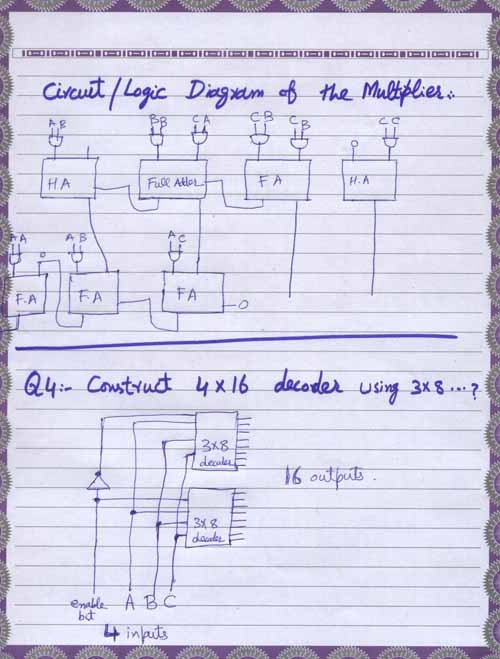 Circuit/Logic Diagram of the Multiplier:.
A B B B C A C B C B C C
H.A Full Adder F A 0 H.A
A A 0 A B A C
F.A F.A F A 0
Q4:- Construct 4x16 decoder using 3x8 ...?
3x8
decoder
16 outputs.
3x8
decoder
enable bit A B C
4 inputs